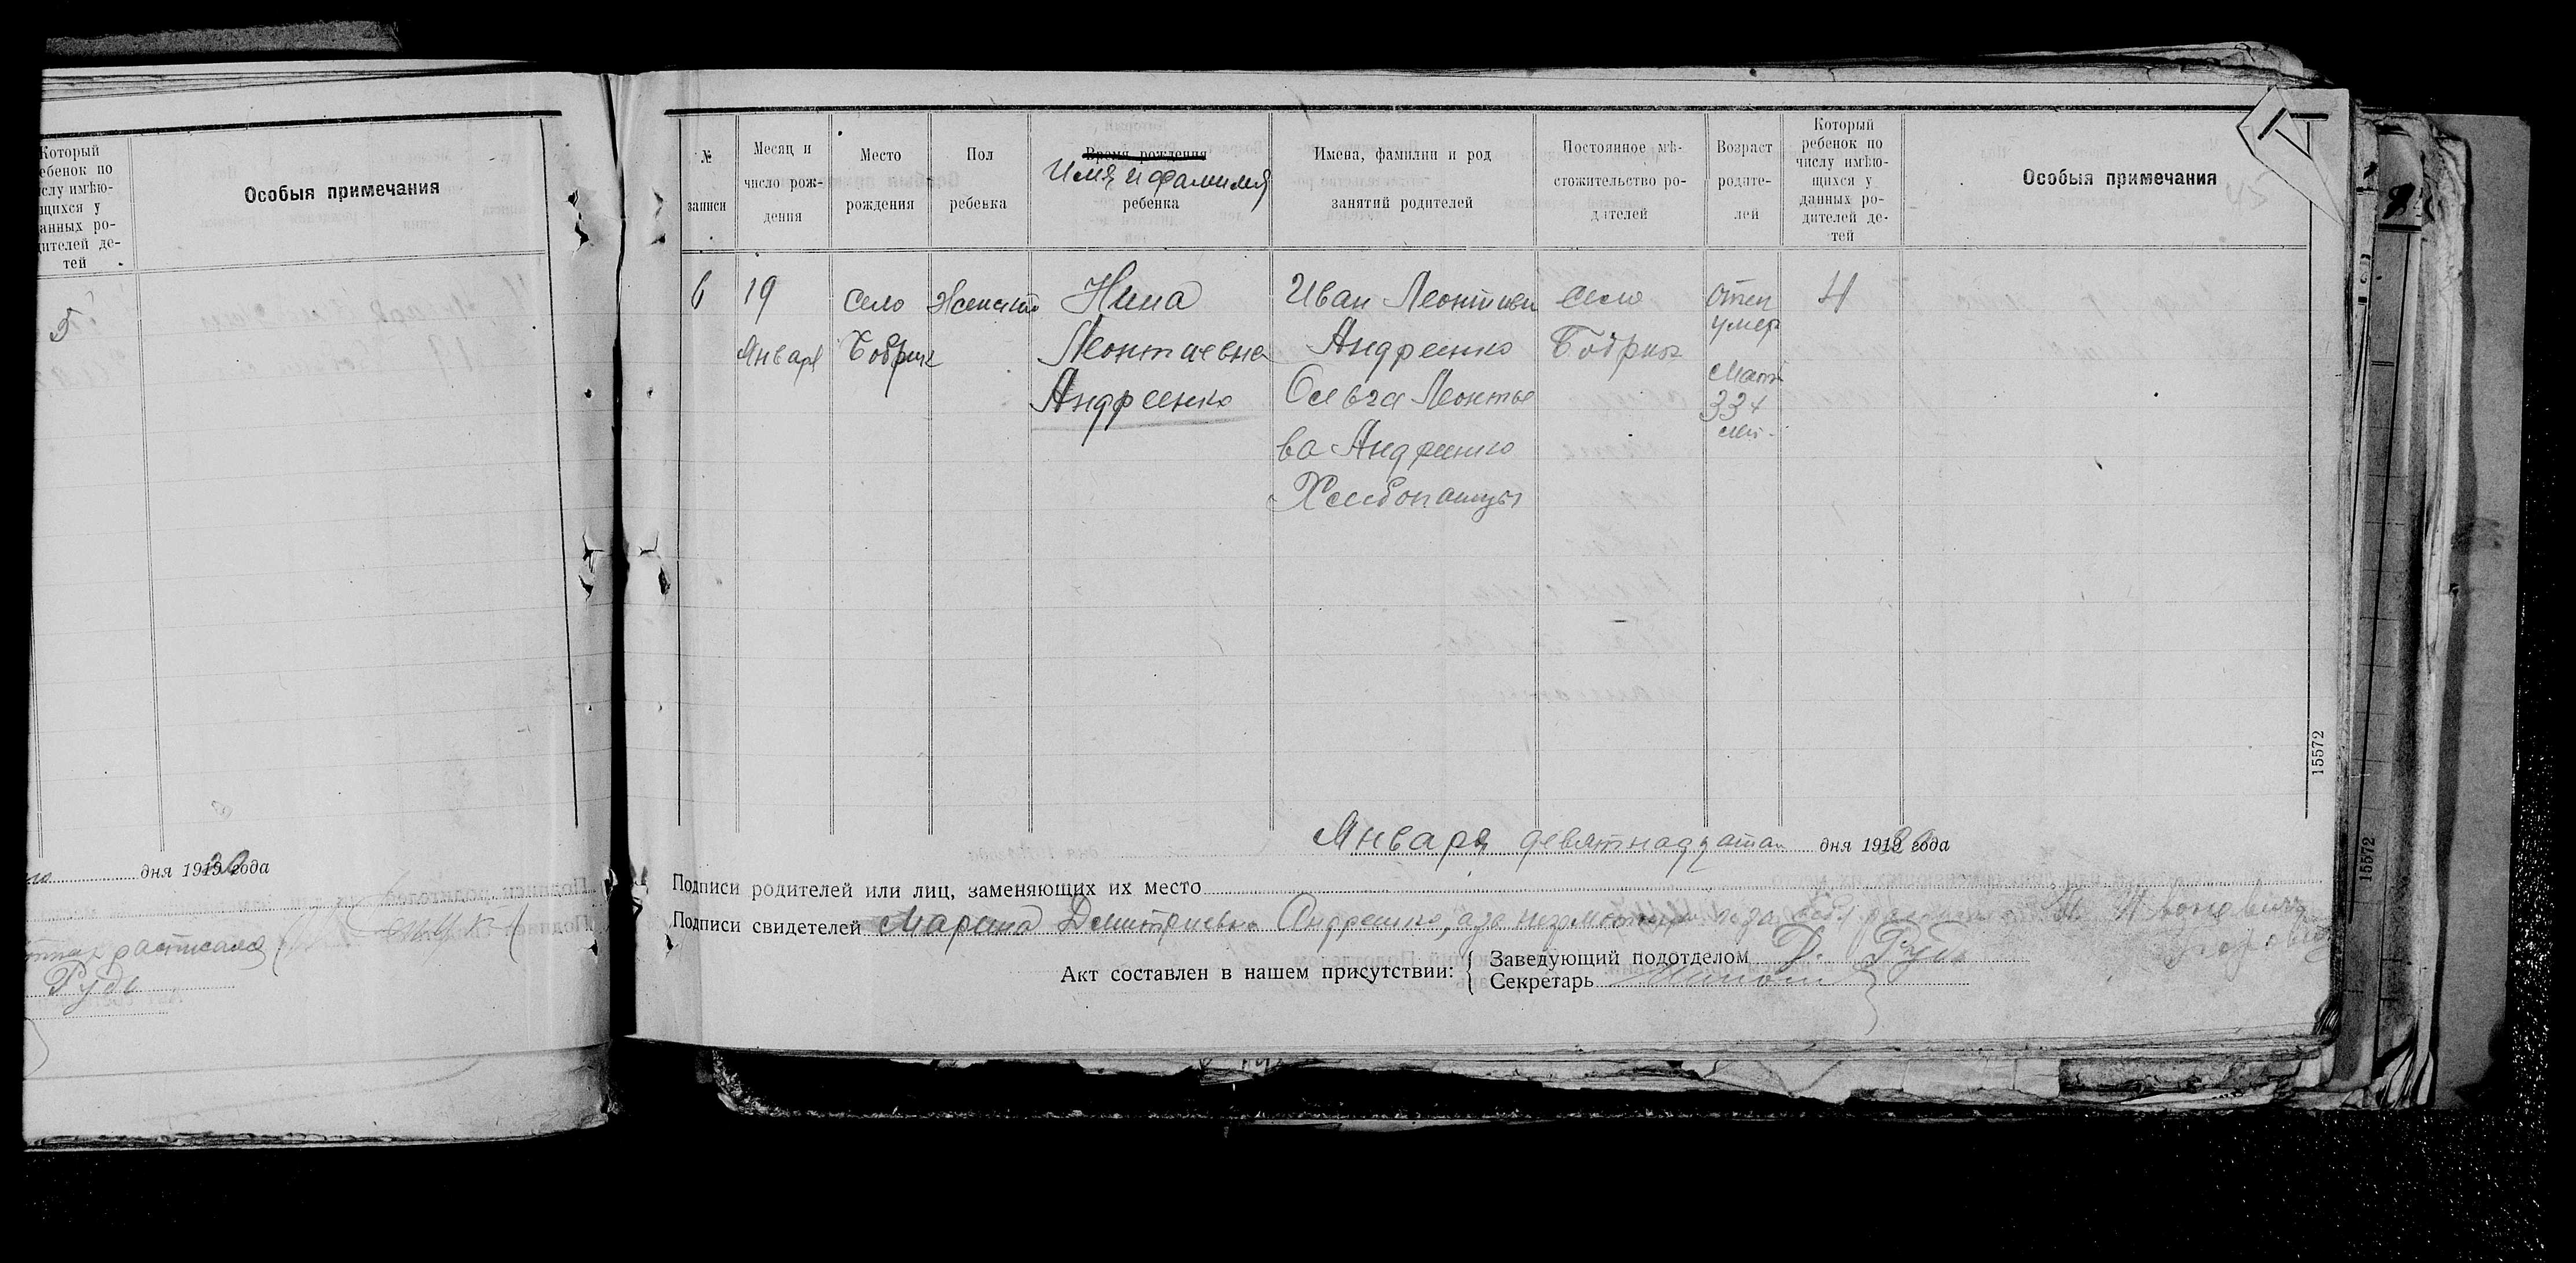 Который
ребенок по
числу имѣю-
щихся у
данных ро-
дителей де-
тей
Особыя примечания
5
дня 1919 года
расписался
Рудь
№
записи
Месяц и
число рож-
дения
Место
рождения
Пол
ребенка
Время рождения
Имя и фамилия
ребенка
Имена, фамилии и род
занятий родителей
Постоянное мѣ-
стожительство ро-
дителей
Возраст
родите-
лей
Который
ребенок по
числу имѣю-
щихся у
данных ро-
дителей де-
тей
Особыя примечания
6
19
Января
Село
Бобрик
Женский
Нина
Леонтиевна
Андреенко
Иван Леонтиев
Андреенко
Ольга Леонтье
ва Андреенко
Хлебопашцы
Село
Бобрик
Отец
умер
Мат
33
4
15572
15572
Января девятнадцатаго дня 1919 года
Подписи родителей или лиц, заменяющих их место
Подписи свидетелей Марина Дмитриевна Андреенко, а за неграмотную
Акт составлен в нашем присутствии:
Заведующий подотделом Д. Рудь
Секретарь